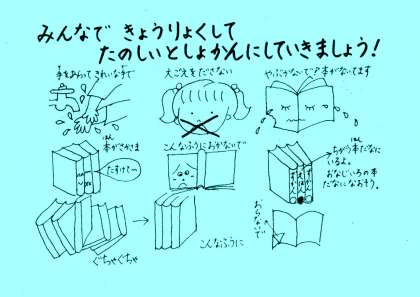 みんなで きょうりょくして
たのしいとしょかんにしていきましょう!
手をあらって きれいな手で
大ごえをださない
やぶかないで?本がないてます
本がさかさま
たすけてー
こんなふうにおかないで
ちがう本だなに
いるよ。
おなじいろの本
だなになおそう。
ぐちゃぐちゃ
こんなふうに
おらないで